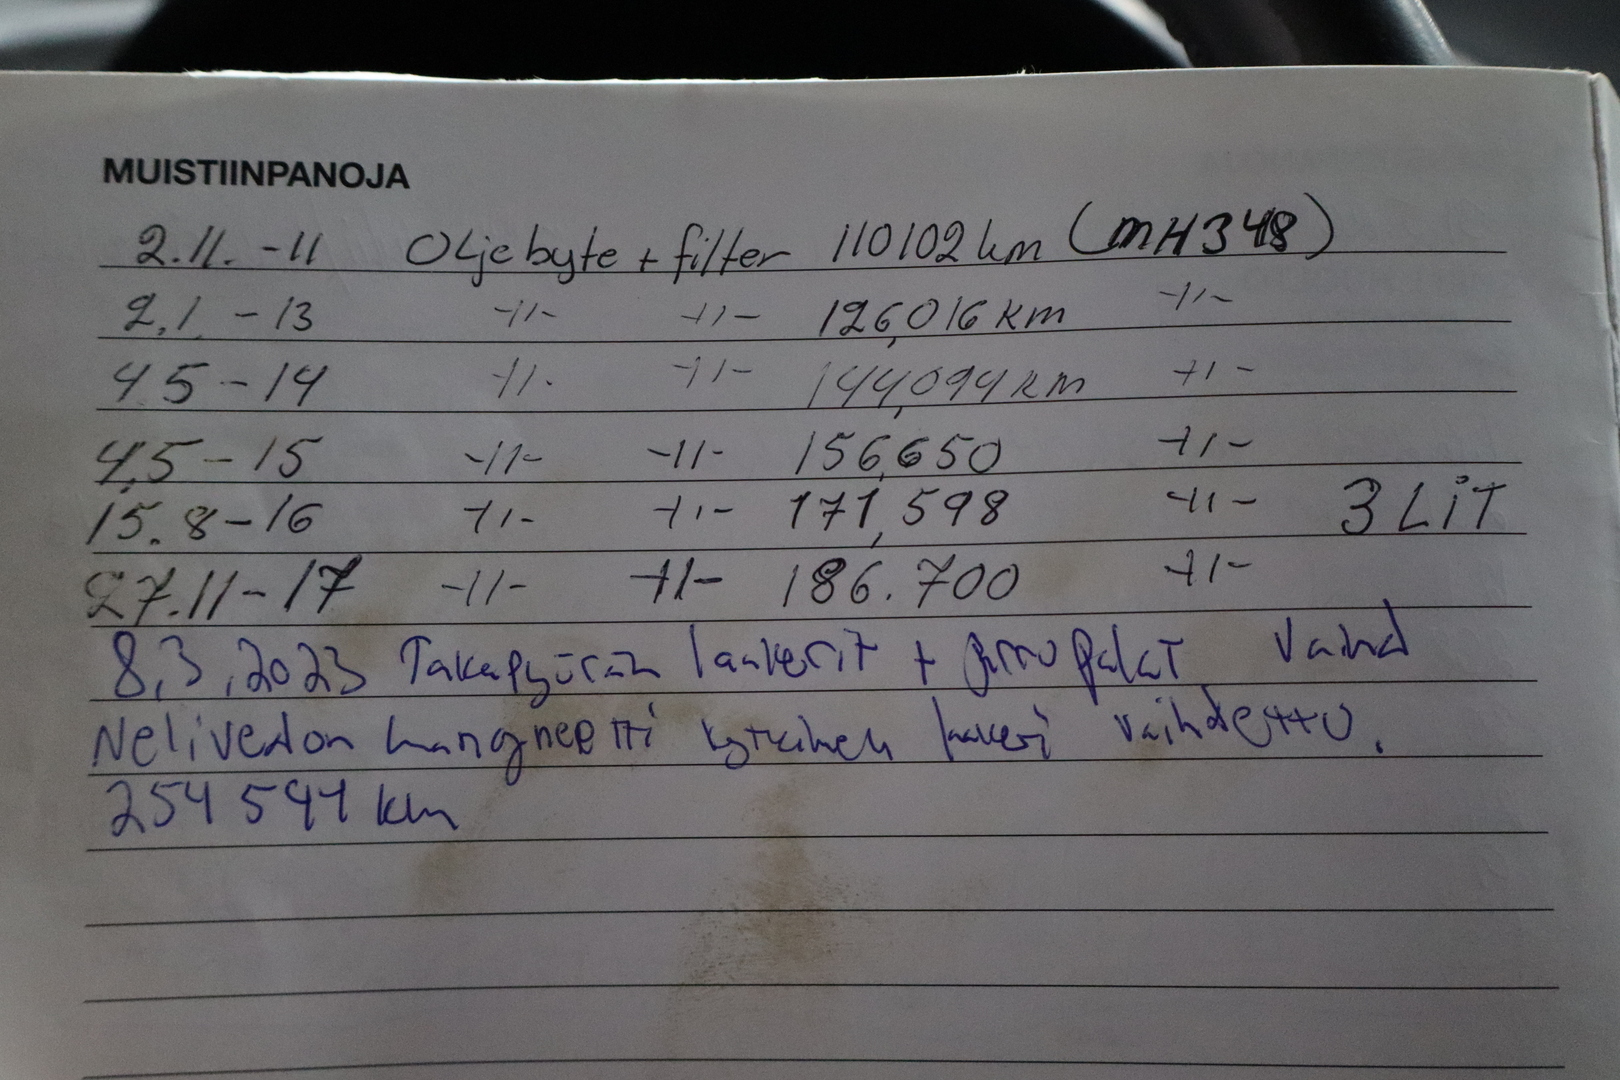 MUISTIINPANOJA
2.11. -11 Oljebyte + filter 110102 km (MH348)
2,1 -13 -11- -11- 126,016 km -11-
4 5 -14 -11- -11- 144,094 km -11-
4,5 -15 -11- -11- 156,650 -11-
15. 8 -16 -11- -11- 171,598 -11- 3 LiT
27.11 -17 -11- -11- 186.700 -11-
8,3,2023 Takapyörän laakerit + jarrupalat vaihd
Nelivedon mangneetti kytkimen laakeri vaihdettu.
254 594 km